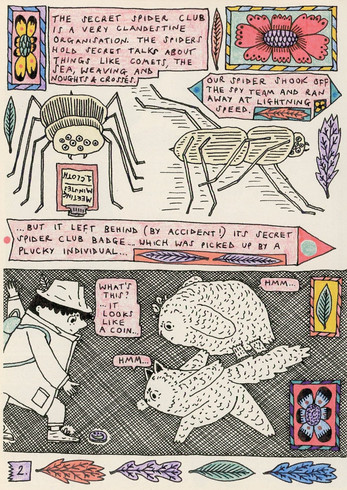 THE SECRET SPIDER CLUB
IS A VERY CLANDESTINE
ORGANISATION. THE SPIDERS
HOLD SECRET TALKS ABOUT
THINGS LIKE COMETS, THE
SEA, WEAVING AND
NOUGHTS & CROSSES!
OUR SPIDER SHOOK OFF
THE SPY TEAM AND RAN
AWAY AT LIGHTNING
SPEED.
MEETING
MINUTES
...BUT IT LEFT BEHIND (BY ACCIDENT!) ITS SECRET
SPIDER CLUB BADGE... WHICH WAS PICKED UP BY A
PLUCKY INDIVIDUAL...
WHAT'S
THIS?
...IT
LOOKS
LIKE
A COIN...
HMM...
HMM...
2.